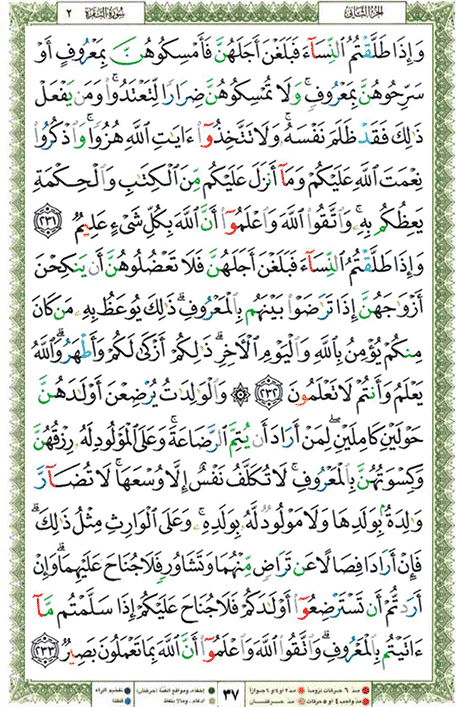 الجزء الثاني سورة البقرة ٢
وَإِذَا طَلَّقْتُمُ ٱلنِّسَآءَ فَبَلَغْنَ أَجَلَهُنَّ فَأَمْسِكُوهُنَّ بِمَعْرُوفٍ أَوْ
سَرِّحُوهُنَّ بِمَعْرُوفٍ ۚ وَلَا تُمْسِكُوهُنَّ ضِرَارًا لِّتَعْتَدُوا۟ ۚ وَمَن يَفْعَلْ
ذَٰلِكَ فَقَدْ ظَلَمَ نَفْسَهُۥ ۚ وَلَا تَتَّخِذُوٓا۟ ءَايَٰتِ ٱللَّهِ هُزُوًا ۚ وَٱذْكُرُوا۟
نِعْمَتَ ٱللَّهِ عَلَيْكُمْ وَمَآ أَنزَلَ عَلَيْكُم مِّنَ ٱلْكِتَٰبِ وَٱلْحِكْمَةِ
يَعِظُكُم بِهِۦ ۚ وَٱتَّقُوا۟ ٱللَّهَ وَٱعْلَمُوٓا۟ أَنَّ ٱللَّهَ بِكُلِّ شَىْءٍ عَلِيمٌ ٢٣١
وَإِذَا طَلَّقْتُمُ ٱلنِّسَآءَ فَبَلَغْنَ أَجَلَهُنَّ فَلَا تَعْضُلُوهُنَّ أَن يَنكِحْنَ
أَزْوَٰجَهُنَّ إِذَا تَرَٰضَوْا۟ بَيْنَهُم بِٱلْمَعْرُوفِ ۗ ذَٰلِكَ يُوعَظُ بِهِۦ مَن كَانَ
مِنكُمْ يُؤْمِنُ بِٱللَّهِ وَٱلْيَوْمِ ٱلْءَاخِرِ ۗ ذَٰلِكُمْ أَزْكَىٰ لَكُمْ وَأَطْهَرُ ۗ وَٱللَّهُ
يَعْلَمُ وَأَنتُمْ لَا تَعْلَمُونَ ٢٣٢ ۞ وَٱلْوَٰلِدَٰتُ يُرْضِعْنَ أَوْلَٰدَهُنَّ
حَوْلَيْنِ كَامِلَيْنِ ۖ لِمَنْ أَرَادَ أَن يُتِمَّ ٱلرَّضَاعَةَ ۚ وَعَلَى ٱلْمَوْلُودِ لَهُۥ رِزْقُهُنَّ
وَكِسْوَتُهُنَّ بِٱلْمَعْرُوفِ ۚ لَا تُكَلَّفُ نَفْسٌ إِلَّا وُسْعَهَا ۚ لَا تُضَآرَّ
وَٰلِدَةٌۢ بِوَلَدِهَا وَلَا مَوْلُودٌ لَّهُۥ بِوَلَدِهِۦ ۚ وَعَلَى ٱلْوَارِثِ مِثْلُ ذَٰلِكَ ۗ
فَإِنْ أَرَادَا فِصَالًا عَن تَرَاضٍ مِّنْهُمَا وَتَشَاوُرٍ فَلَا جُنَاحَ عَلَيْهِمَا ۗ وَإِنْ
أَرَدتُّمْ أَن تَسْتَرْضِعُوٓا۟ أَوْلَٰدَكُمْ فَلَا جُنَاحَ عَلَيْكُمْ إِذَا سَلَّمْتُم مَّآ
ءَاتَيْتُم بِٱلْمَعْرُوفِ ۗ وَٱتَّقُوا۟ ٱللَّهَ وَٱعْلَمُوٓا۟ أَنَّ ٱللَّهَ بِمَا تَعْمَلُونَ بَصِيرٌ ٢٣٣
٣٧